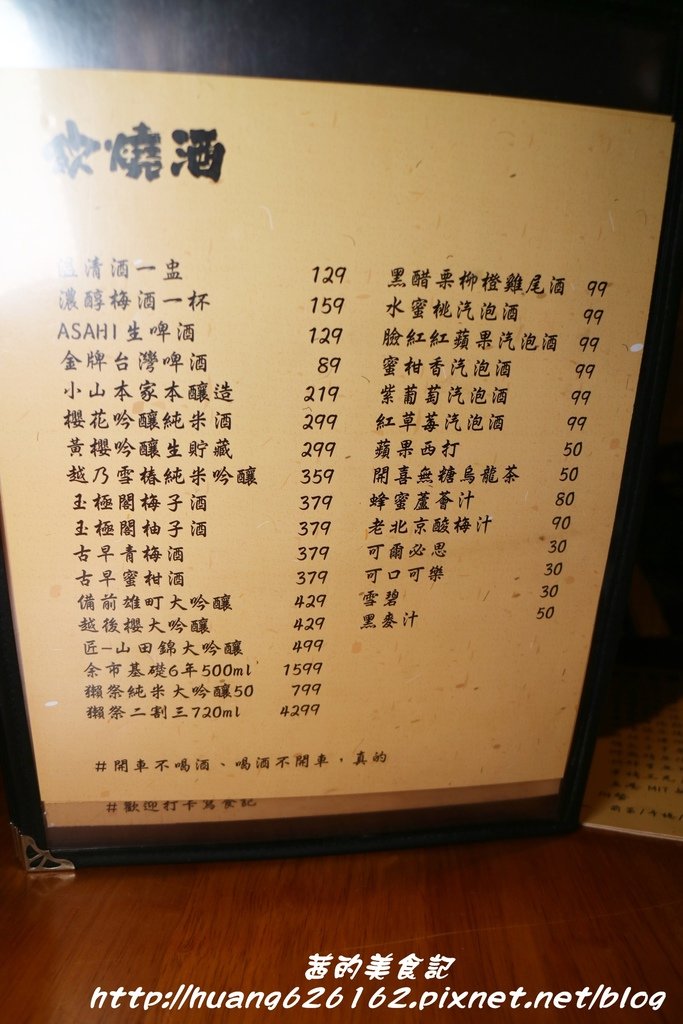 燒酒
清酒一盅 129
濃醇梅酒一杯 159
ASAHI生啤酒 129
金牌台灣啤酒 89
小山本家本釀造 219
櫻花吟釀純米酒 299
黃櫻吟釀生貯藏 299
越乃雪椿純米吟釀 359
玉極閣梅子酒 379
玉極閣柚子酒 379
古早青梅酒 379
古早蜜柑酒 379
備前雄町大吟釀 429
越後櫻大吟釀 429
匠-山田錦大吟釀 499
余市基礎6年500ml 1599
獺祭純米大吟釀50 799
獺祭二割三720ml 4299
黑醋栗柳橙雞尾酒 99
水蜜桃汽泡酒 99
臉紅紅蘋果汽泡酒 99
蜜柑香汽泡酒 99
紫葡萄汽泡酒 99
紅草莓汽泡酒 99
蘋果西打 50
開喜無糖烏龍茶 50
蜂蜜蘆薈汁 80
老北京酸梅汁 90
可爾必思 30
可口可樂 30
雪碧 30
黑麥汁 50
#開車不喝酒、喝酒不開車,真的
#歡迎打卡寫食記
MIT
茜的美食記
http://huang626162.pixnet.net/blog